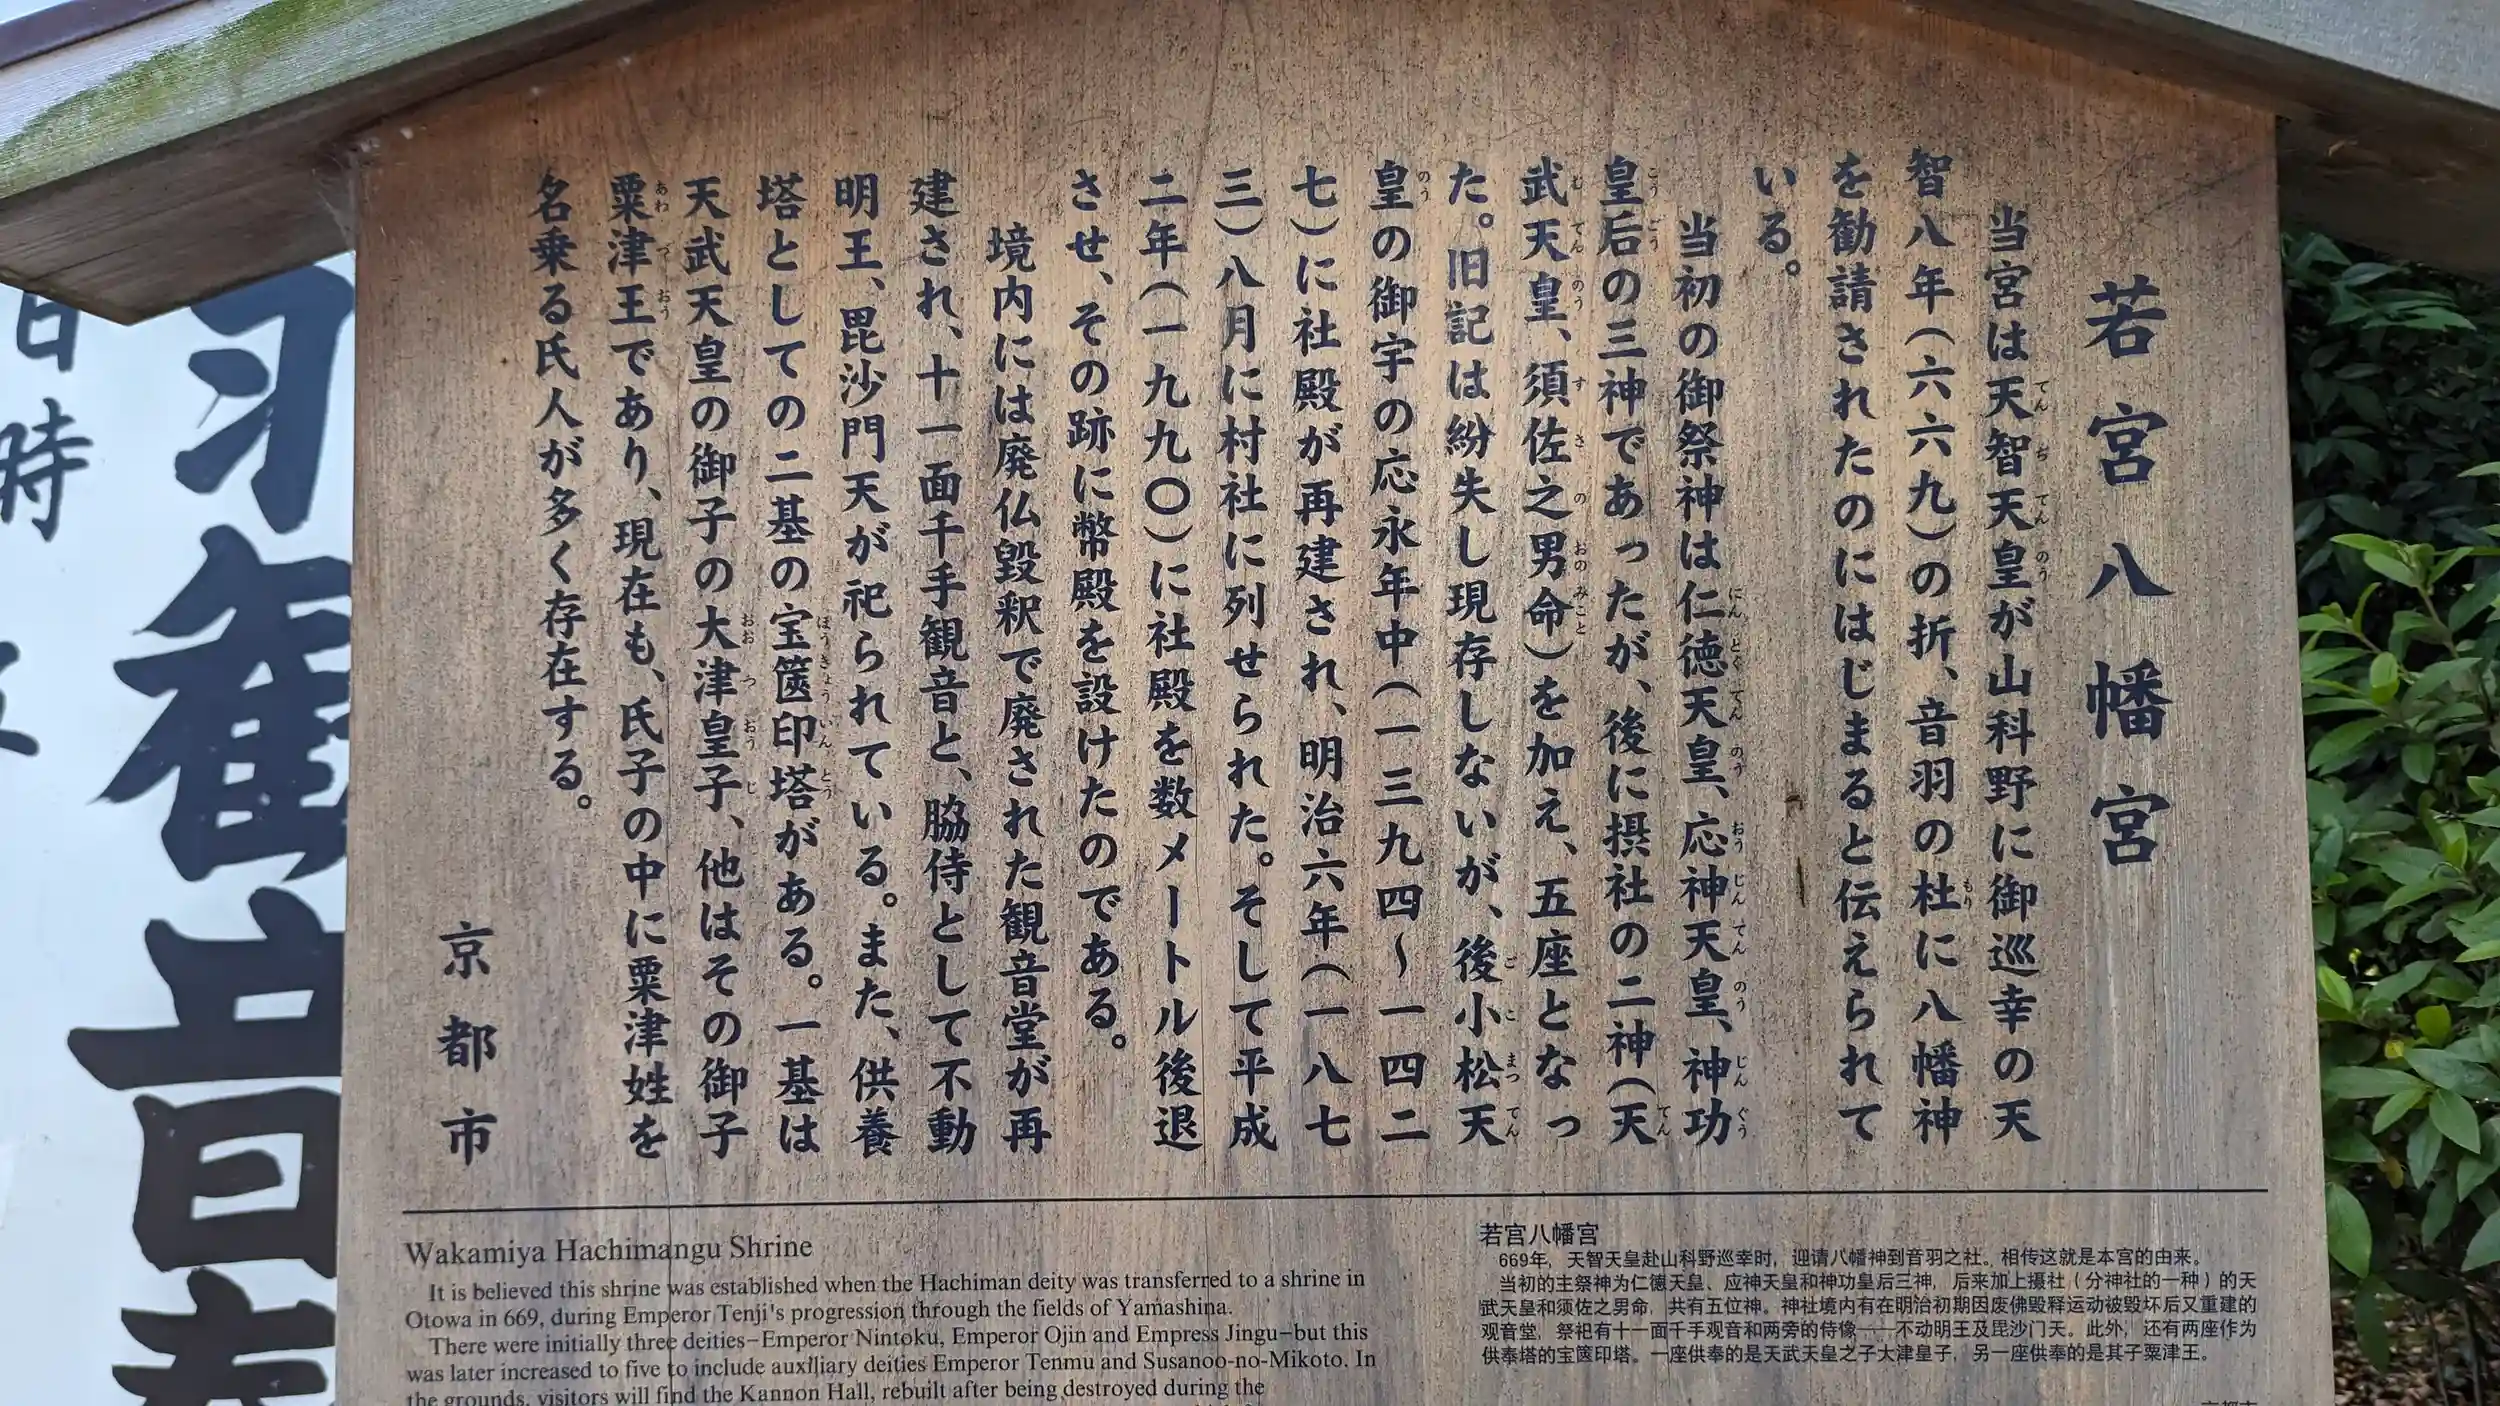 若宮八幡宮
当宮は天智天皇が山科野に御巡幸の天
智八年(六六九)の折、音羽の杜に八幡神
を勧請されたのにはじまると伝えられて
いる。
当初の御祭神は仁徳天皇、応神天皇、神功
皇后の三神であったが、後に摂社の二神(天
武天皇、須佐之男命)を加え、五座となっ
た。旧記は紛失し現存しないが、後小松天
皇の御宇の応永年中(一三九四～一四二
七)に社殿が再建され、明治六年(一八七
三)八月に村社に列せられた。そして平成
二年(一九九〇)に社殿を数メートル後退
させ、その跡に幣殿を設けたのである。
境内には廃仏毀釈で廃された観音堂が再
建され、十一面千手観音と、脇侍として不動
明王、毘沙門天が祀られている。また、供養
塔としての二基の宝篋印塔がある。一基は
天武天皇の御子の大津皇子、他はその御子
粟津王であり、現在も、氏子の中に粟津姓を
名乗る氏人が多く存在する。
京都市
Wakamiya Hachimangu Shrine
It is believed this shrine was established when the Hachiman deity was transferred to a shrine in
Otowa in 669, during Emperor Tenji's progression through the fields of Yamashina.
There were initially three deities–Emperor Nintoku, Emperor Ojin and Empress Jingu–but this
was later increased to five to include auxiliary deities Emperor Tenmu and Susanoo-no-Mikoto. In
the grounds, visitors will find the Kannon Hall, rebuilt after being destroyed during the
若宫八幡宫
669年，天智天皇赴山科野巡幸时，迎请八幡神到音羽之社。相传这就是本宫的由来。
当初的主祭神为仁德天皇、应神天皇和神功皇后三神，后来加上摄社（分神社的一种）的天
武天皇和须佐之男命，共有五位神。神社境内有在明治初期因废佛毁释运动被毁坏后又重建的
观音堂，祭祀有十一面千手观音和两旁的侍像——不动明王及毘沙门天。此外，还有两座作为
供奉塔的宝箧印塔。一座供奉的是天武天皇之子大津皇子，另一座供奉的是其子粟津王。
日時
観音